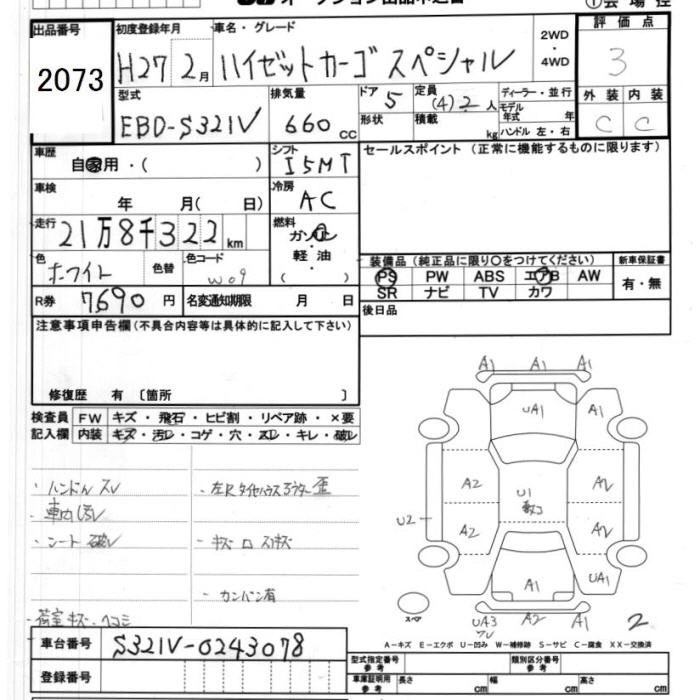 オークション出品申込書 ①会場控
出品番号 初度登録年月 車名・グレード 評価点
2073 H27 2月 ハイゼットカーゴスペシャル 2WD・4WD 3
型式 排気量 ドア 定員 ディーラー・並行 外装 内装
EBD-S321V 660cc 5 (4)2人 モデル年式 年 C C
形状 積載 kg ハンドル 左・右
車歴 シフト セールスポイント (正常に機能するものに限ります)
自家用・( ) I5MT
車検 冷房
年 月( 日) AC
走行 燃料
21万8千322km ガソリン・軽油・( )
色 色替 色コード 装備品 (純正品に限り○をつけてください) 新車保証書
ホワイト W09 PS PW ABS エアB AW 有・無
R券 7690円 名変通知期限 月 日 SR ナビ TV カワ
注意事項申告欄(不具合内容等は具体的に記入して下さい) 後日品
修復歴 有 〔箇所 〕
検査員 FW キズ・飛石・ヒビ割・リペア跡・×要
記入欄 内装 キズ・汚レ・コゲ・穴・スレ・キレ・破レ
・ハンドルスレ
・車内汚レ
・シート破レ
・荷室キズ・ヘコミ
・左Rタイヤハウス
歪
・カンバン有
A1 A1 A1
UA1 A1
A2 U1 A2
U2 A2 A2
A1 UA1
スペア UA3 A2 A1 2
A-キズ E-エクボ U-凹み W-補修跡 S-サビ C-腐食 XX-交換済
車台番号 S321V-0243078
登録番号
型式指定番号 参考 類別区分番号 参考
車庫証明用 参考 長さ cm 幅 cm 高さ cm